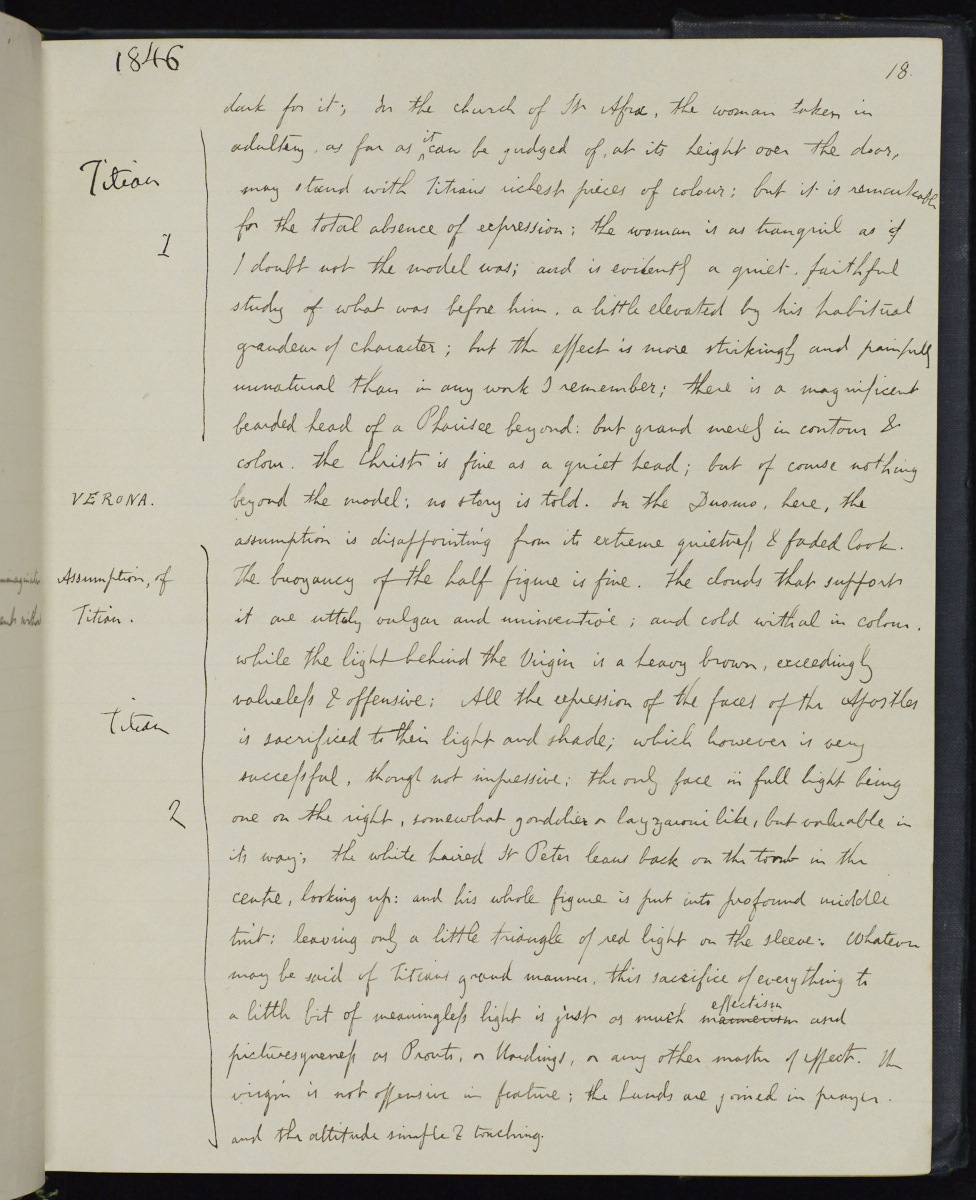 1846
18.
dark for it; In the church of St Afra, the woman taken in
adultery, as far as it can be judged of, at its height over the door,
Titian
may stand with Titians richest pieces of colour; but it is remarkable
for the total absence of expression; the woman is as tranquil as if
1
I doubt not the model was; and is evidently a quiet, faithful
study of what was before him, a little elevated by his habitual
grandeur of character; but the effect is more strikingly and painfully
unnatural than in any work I remember; there is a magnificent
bearded head of a Pharisee beyond: but grand merely in contour &
colour. The Christ is fine as a quiet head; but of course nothing
VERONA.
beyond the model; no story is told. In the Duomo, here, the
assumption is disappointing from its extreme quietness & faded look.
Assumption, of
The buoyancy of the half figure is fine. The clouds that support
Titian.
it are utterly vulgar and uninventive; and cold withal in colour,
while the light behind the Virgin is a heavy brown, exceedingly
valueless & offensive; All the expression of the faces of the Apostles
Titian
is sacrificed to their light and shade; which however is very
successful, though not impressive; the only face in full light being
2
one on the right, somewhat gondolier or lazzaroni like, but valuable in
its way; the white haired St Peter leans back on the tomb in the
centre, looking up: and his whole figure is put into profound middle
tint; leaving only a little triangle of red light on the sleeve: Whatever
may be said of Titians grand manner, this sacrifice of everything to
effectism
a little bit of meaningless light is just as much mannerism and
picturesqueness as Prouts, or Hardings, or any other master of effect. The
virgin is not offensive in feature; the hands are joined in prayer.
and the attitude simple & touching.